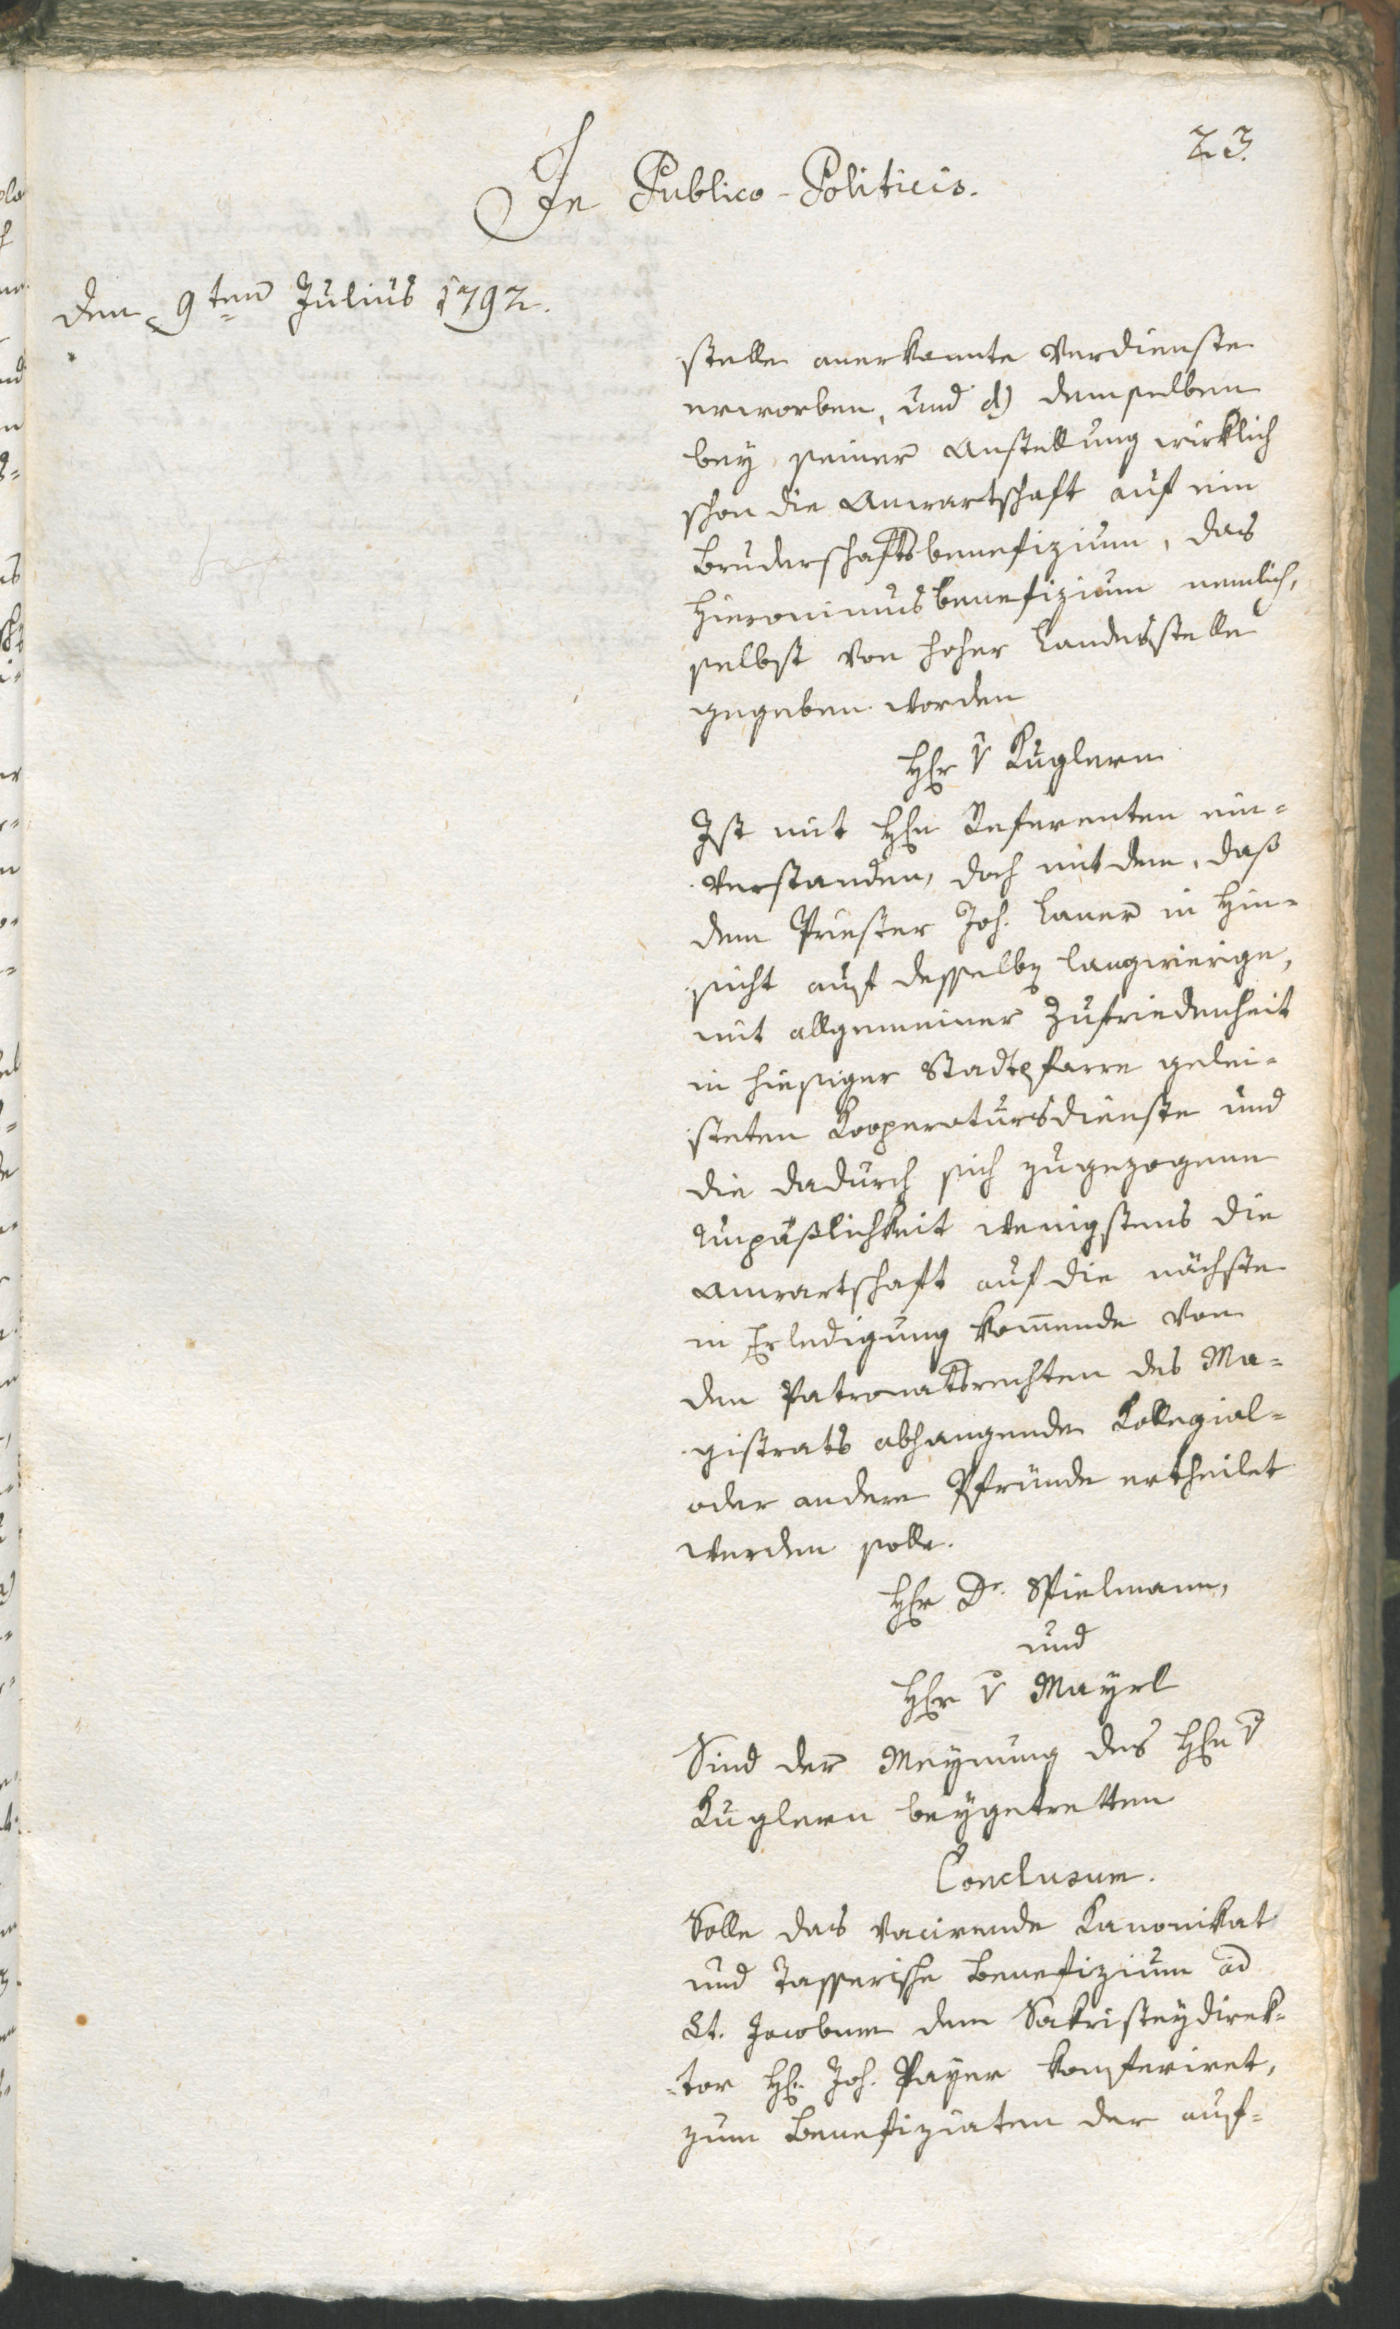 23.
In Publico-Politicis.
den 9ten Julius 1792.
stelle anerkannte Verdienste
erworben, und d) demselben
bey seiner Anstellung wirklich
schon die Anwartschaft auf ein
Bruderschaftsbenefizium, das
Hieronimusbenefizium nemlich,
selbst von hoher Landesstelle
gegeben worden
Hr v Kuglern
Ist mit Hrn Referenten ein-
verstanden, doch mit dem, daß
dem Priester Joh. Laner in Hin-
sicht auf desselben langwierige,
mit allgemeiner Zufriedenheit
in hiesiger Stadtpfarre gelei-
steten Kooperatursdienste und
die dadurch sich zugezogene
Unpäßlichkeit wenigstens die
Anwartschaft auf die nächste
in Erledigung kommende von
den Patronatsrechten des Ma-
gistrats abhangende Kollegial-
oder andere Pfründe ertheilet
werden solle.
Hr Dr. Spielmann,
und
Hr v Mayrl
Sind der Meynung des Hrn v
Kuglern beygetretten
Conclusum.
Solle das vacirende Kanonikat
und Tasserische Benefizium ad
St. Jacobum dem Sakristeydirek-
-tor H. Joh. Payer konferiret,
zum Benefiziaten der auf-